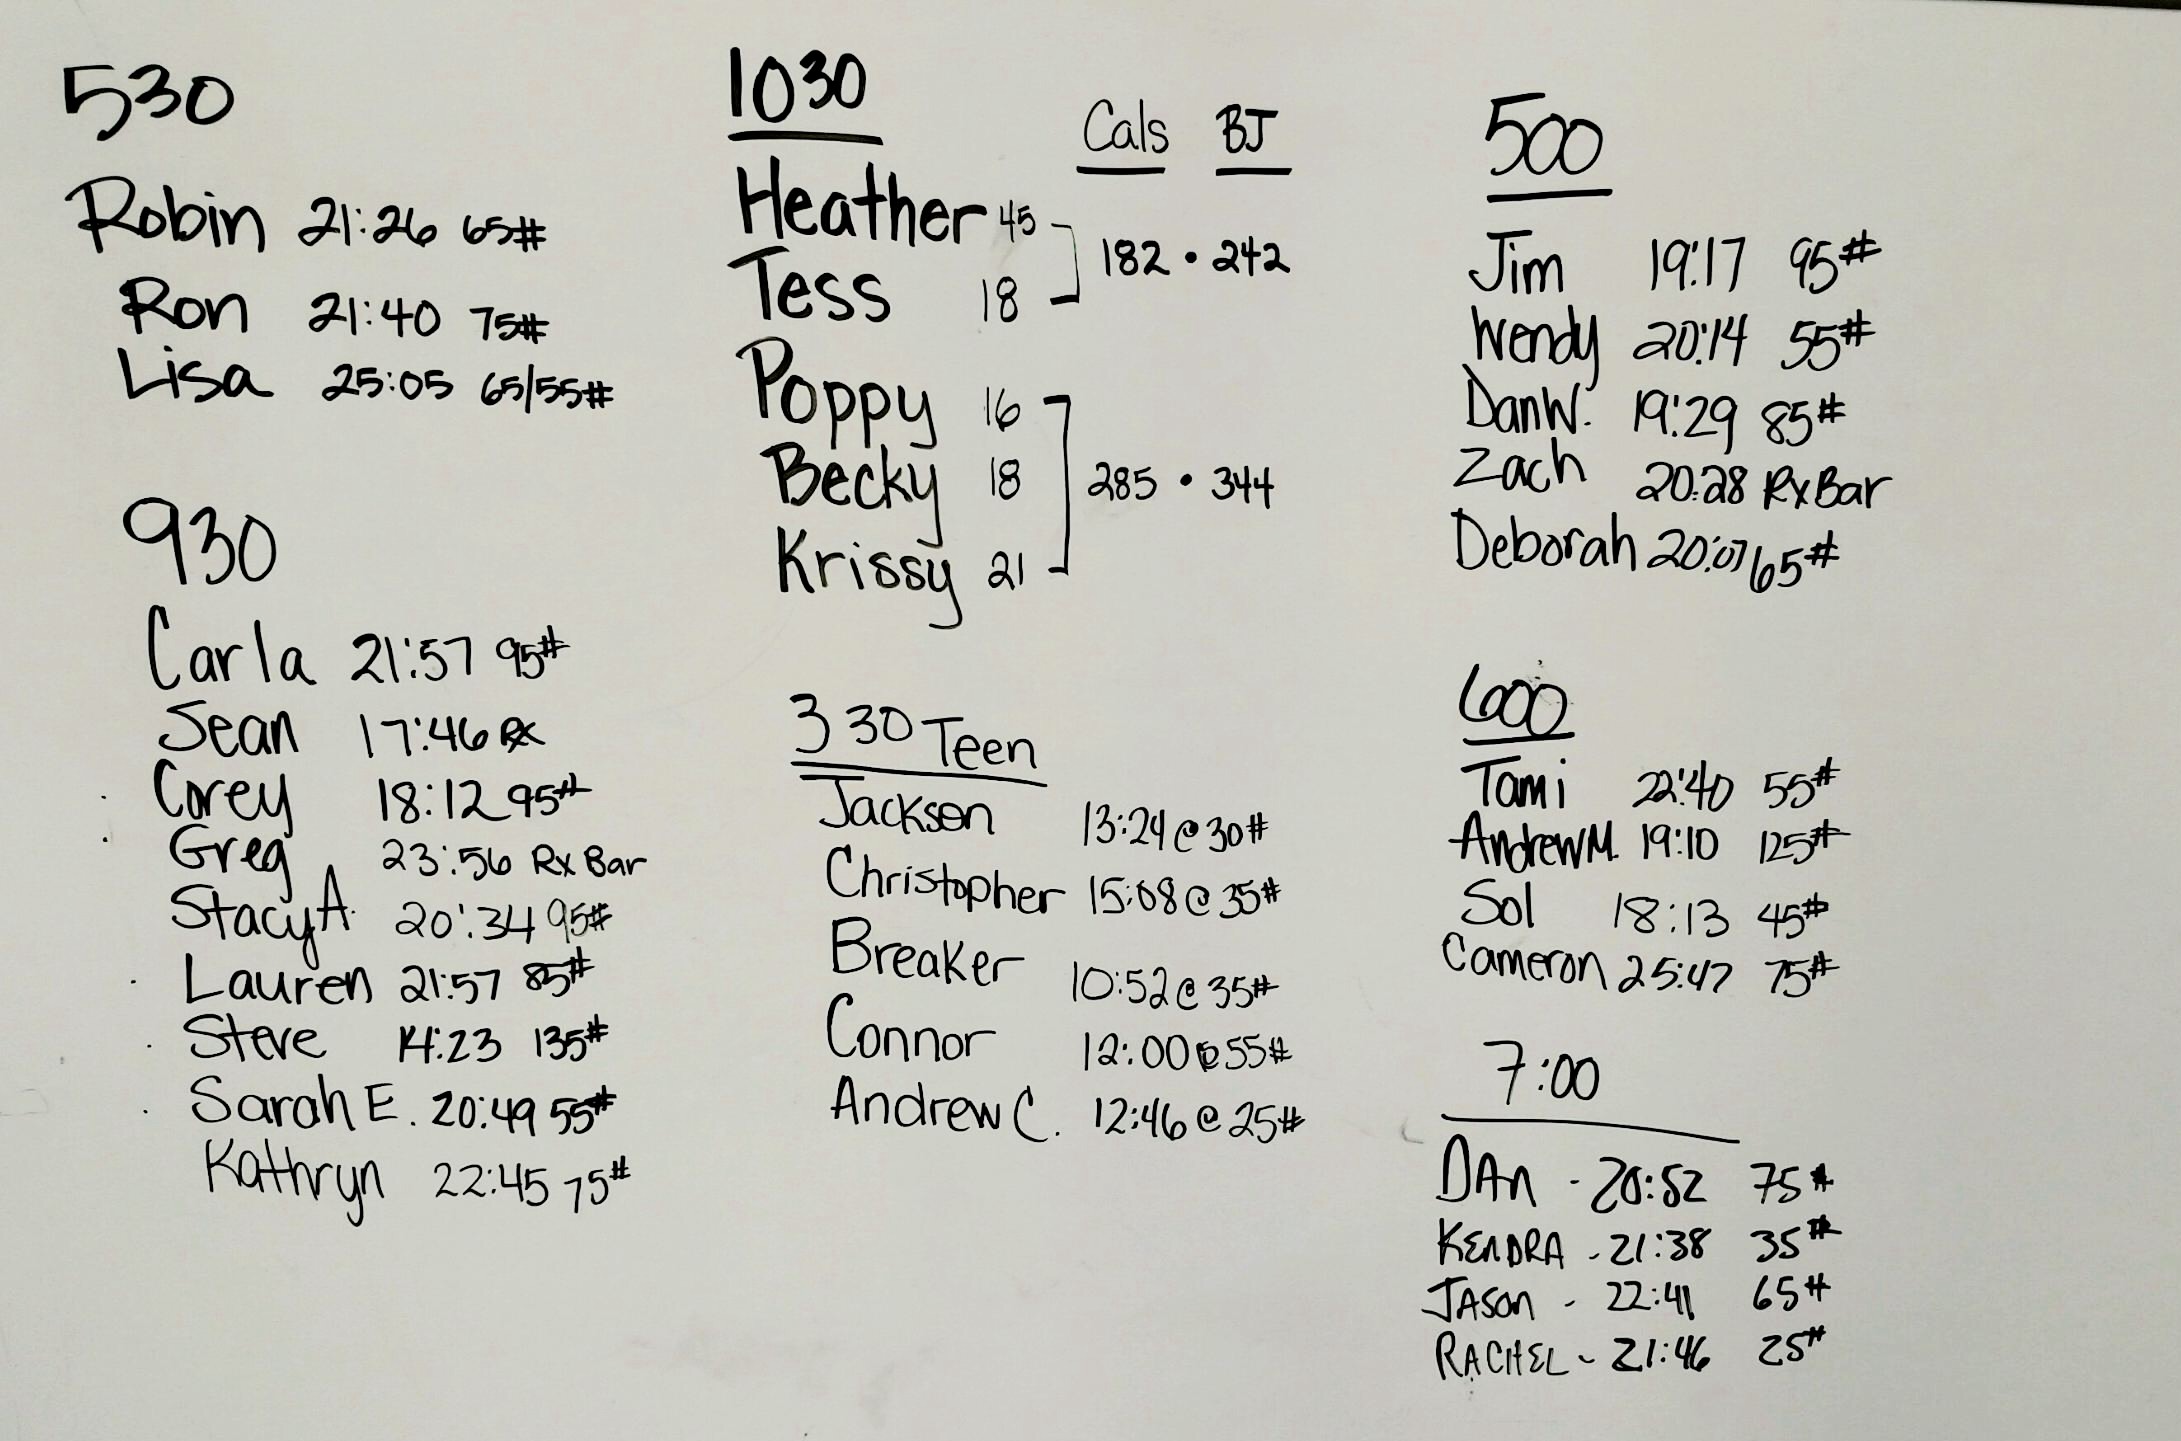 530
Robin 21:26 65#
Ron 21:40 75#
Lisa 25:05 65/55#
930
Carla 21:57 95#
Sean 17:46 RX
Corey 18:12 95#
Greg 23:56 Rx Bar
Stacy A. 20:34 95#
Lauren 21:57 85#
Steve 14:23 135#
Sarah E. 20:49 55#
Kathryn 22:45 75#
1030
Cals BJ
Heather 45
182 • 242
Tess 18
Poppy 16
Becky 18
285 • 344
Krissy 21
330 Teen
Jackson 13:24 @ 30#
Christopher 15:08 @ 35#
Breaker 10:52 @ 35#
Connor 12:00 @ 55#
Andrew C. 12:46 @ 25#
500
Jim 19:17 95#
Wendy 20:14 55#
Dan W. 19:29 85#
Zach 20:28 Rx Bar
Deborah 20:07 65#
600
Tami 22:40 55#
Andrew M. 19:10 125#
Sol 18:13 45#
Cameron 25:47 75#
7:00
DAn - 20:52 75#
KEnDRA - 21:38 35#
JASon - 22:41 65#
RACHEL - 21:46 25#